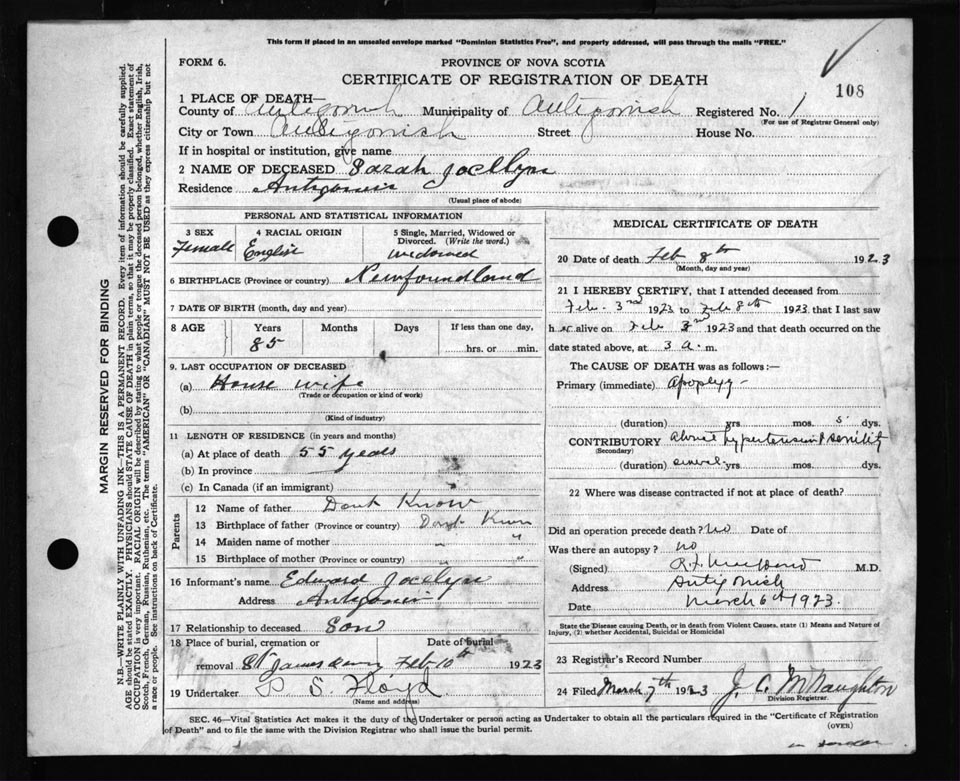 This form if placed in an unsealed envelope marked "Dominion Statistics Free", and properly addressed, will pass through the mails "FREE."
FORM 6.
PROVINCE OF NOVA SCOTIA
CERTIFICATE OF REGISTRATION OF DEATH
108
1 PLACE OF DEATH—
County of Antigonish Municipality of Antigonish Registered No. 1
(For use of Registrar General only)
City or Town Antigonish Street House No.
If in hospital or institution, give name
2 NAME OF DECEASED Sarah Jocellyn
Residence Antigonish
(Usual place of abode)
PERSONAL AND STATISTICAL INFORMATION
3 SEX 4 RACIAL ORIGIN 5 Single, Married, Widowed or Divorced. (Write the word.)
Female English widowed
6 BIRTHPLACE (Province or country) Newfoundland
7 DATE OF BIRTH (month, day and year)
8 AGE Years Months Days If less than one day,
85 hrs. or min.
9. LAST OCCUPATION OF DECEASED
(a) House wife
(Trade or occupation or kind of work)
(b)
(Kind of industry)
11 LENGTH OF RESIDENCE (in years and months)
(a) At place of death 55 years
(b) In province
(c) In Canada (if an immigrant)
Parents
12 Name of father Dont Know
13 Birthplace of father (Province or country) Dont Know
14 Maiden name of mother " "
15 Birthplace of mother (Province or country) " "
16 Informant's name Edward Jocelyn
Address Antigonish
17 Relationship to deceased Son
18 Place of burial, cremation or removal Date of burial
St James Feb 10th 1923
19 Undertaker S. Floyd
(Name and address)
MEDICAL CERTIFICATE OF DEATH
20 Date of death Feb 8th 1923
(Month, day and year)
21 I HEREBY CERTIFY, that I attended deceased from
Feb. 3rd 1923 to Feb 8th 1923 that I last saw
her alive on Feb 1923 and that death occurred on the
date stated above, at 3 a. m.
The CAUSE OF DEATH was as follows:—
Primary (immediate) Apoplexy
(duration) yrs. mos. 5 dys.
CONTRIBUTORY hypertension & senility
(Secondary)
(duration) several yrs. mos. dys.
22 Where was disease contracted if not at place of death?
Did an operation precede death? No Date of
Was there an autopsy? no
(Signed) M.D.
Address Antigonish
Date March 6th 1923.
State the Disease causing Death, or in death from Violent Causes, state (1) Means and Nature of Injury, (2) whether Accidental, Suicidal or Homicidal
23 Registrar's Record Number
24 Filed March 7th 1923 J. C. McNaughton
Division Registrar.
SEC. 46—Vital Statistics Act makes it the duty of the Undertaker or person acting as Undertaker to obtain all the particulars required in the "Certificate of Registration of Death" and to file the same with the Division Registrar who shall issue the burial permit.
(OVER)
MARGIN RESERVED FOR BINDING
N.B.—WRITE PLAINLY WITH UNFADING INK—THIS IS A PERMANENT RECORD. Every item of information should be carefully supplied.
AGE should be stated EXACTLY. PHYSICIANS should STATE CAUSE OF DEATH in plain terms, so that it may be properly classified. Exact statement of
OCCUPATION is very important. RACIAL ORIGIN will be described by stating to what people or tongue the deceased person belonged, whether English, Irish,
Scotch, French, German, Russian, Ruthenian, etc. The terms "AMERICAN" or "CANADIAN" MUST NOT BE USED as they express citizenship but not
a race or people. See instructions on back of Certificate.